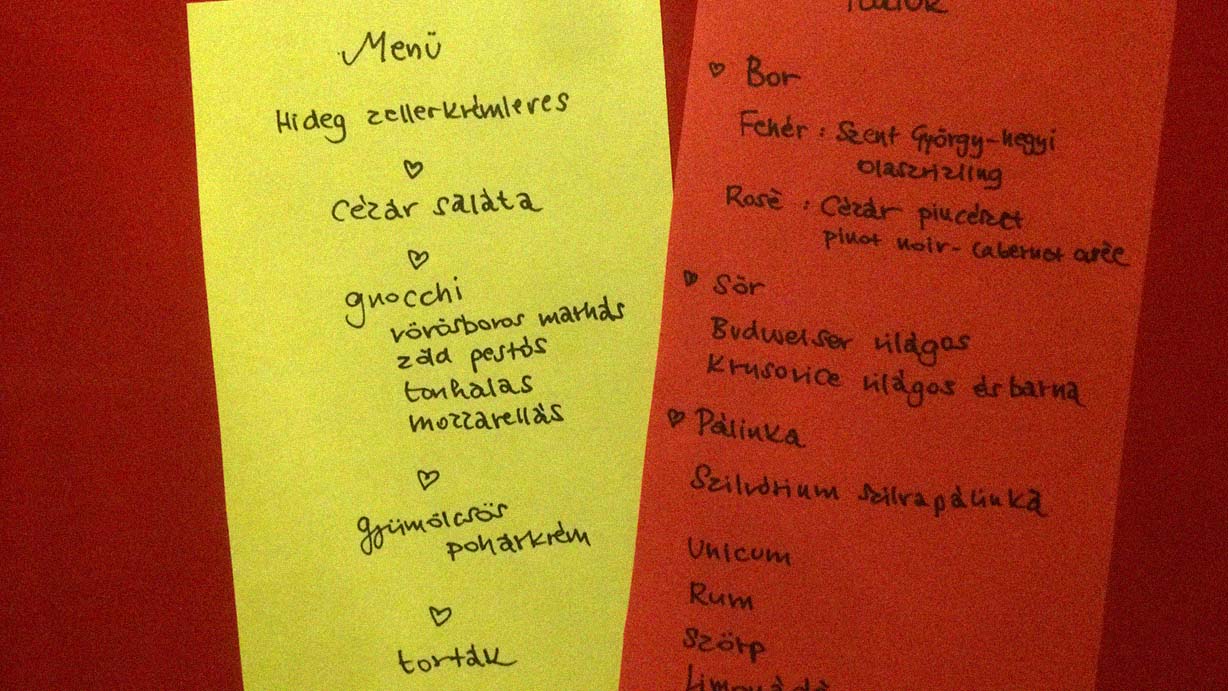 Menü
Hideg zellerkrémleves
Cézár saláta
gnocchi
vörösboros marhás
zöld pestós
tonhalas
mozzarellás
gyümölcsös
pohárkrém
torták
Italok
Bor
Fehér : Szent György-hegyi
olaszrizling
Rosè : Cézár pincészet
pinot noir - cabernet
Sör
Budweiser világos
Krusovice világos és barna
Pálinka
Szilvórium szilvapálinka
Unicum
Rum
Szörp
Limonádé